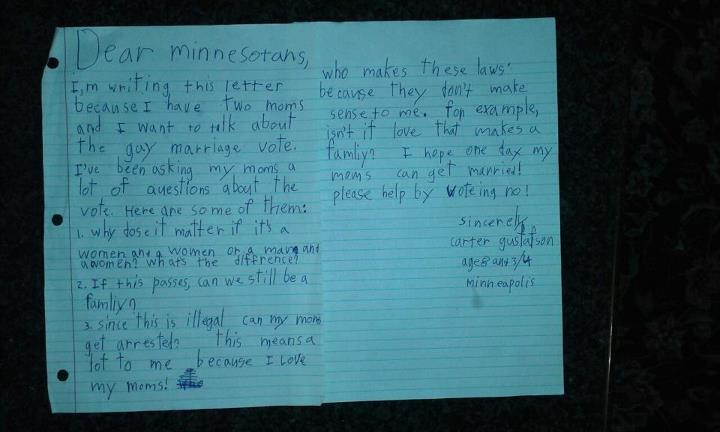 Dear minnesotans,
I,m writing this letter
because I have two moms
and I want to talk about
the gay marriage vote.
I've been asking my moms a
lot of questions about the
vote. Here are some of them:
1. why dose it matter if it's a
women and a women or a man and
a women? whats the diffrence?
2. If this passes, can we still be a
famliy?
3. since this is illegal can my moms
get arrested? this means a
lot to me because I love
my moms!
who makes these laws?
because they don't make
sense to me. for example,
isn't it love that makes a
famliy? I hope one day my
moms can get married!
please help by voteing no!
sincerely
carter gustafson
age 8 and 3/4
minneapolis